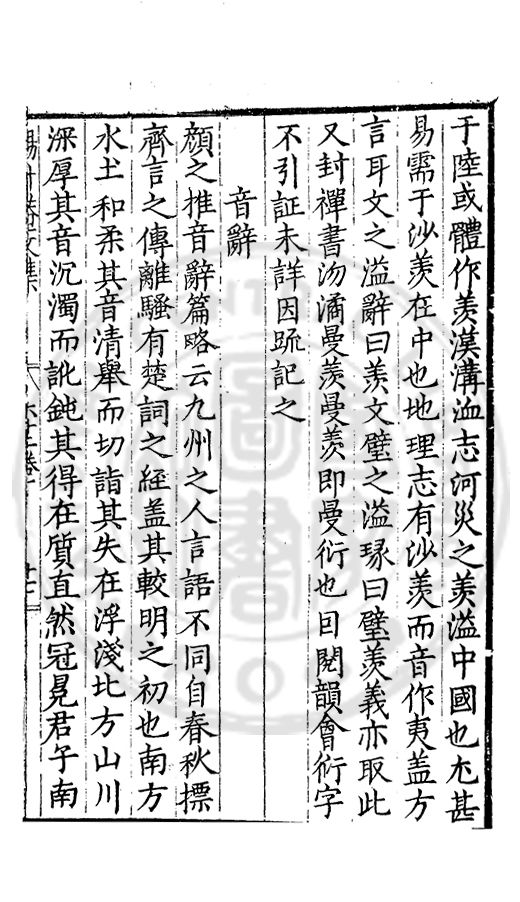 于陸或體作羨漢溝洫志河災之羨溢中國也尢甚
易需于沙羨在中也地理志有沙羨而音作夷盖方
言耳文之溢辭曰羨文璧之溢瑑曰璧羨義亦取此
又封禪書沕潏曼羨曼羨即曼衍也囙閱韻會衍字
不引証未詳因疏記之
音辭
顔之推音辭篇略云九州之人言語不同自春秋摽
齊言之傳離騷有楚詞之經盖其較明之初也南方
水土和柔其音清舉而切詣其失在浮淺北方山川
深厚其音沉濁而訛鈍其得在質直然冠冕君子南